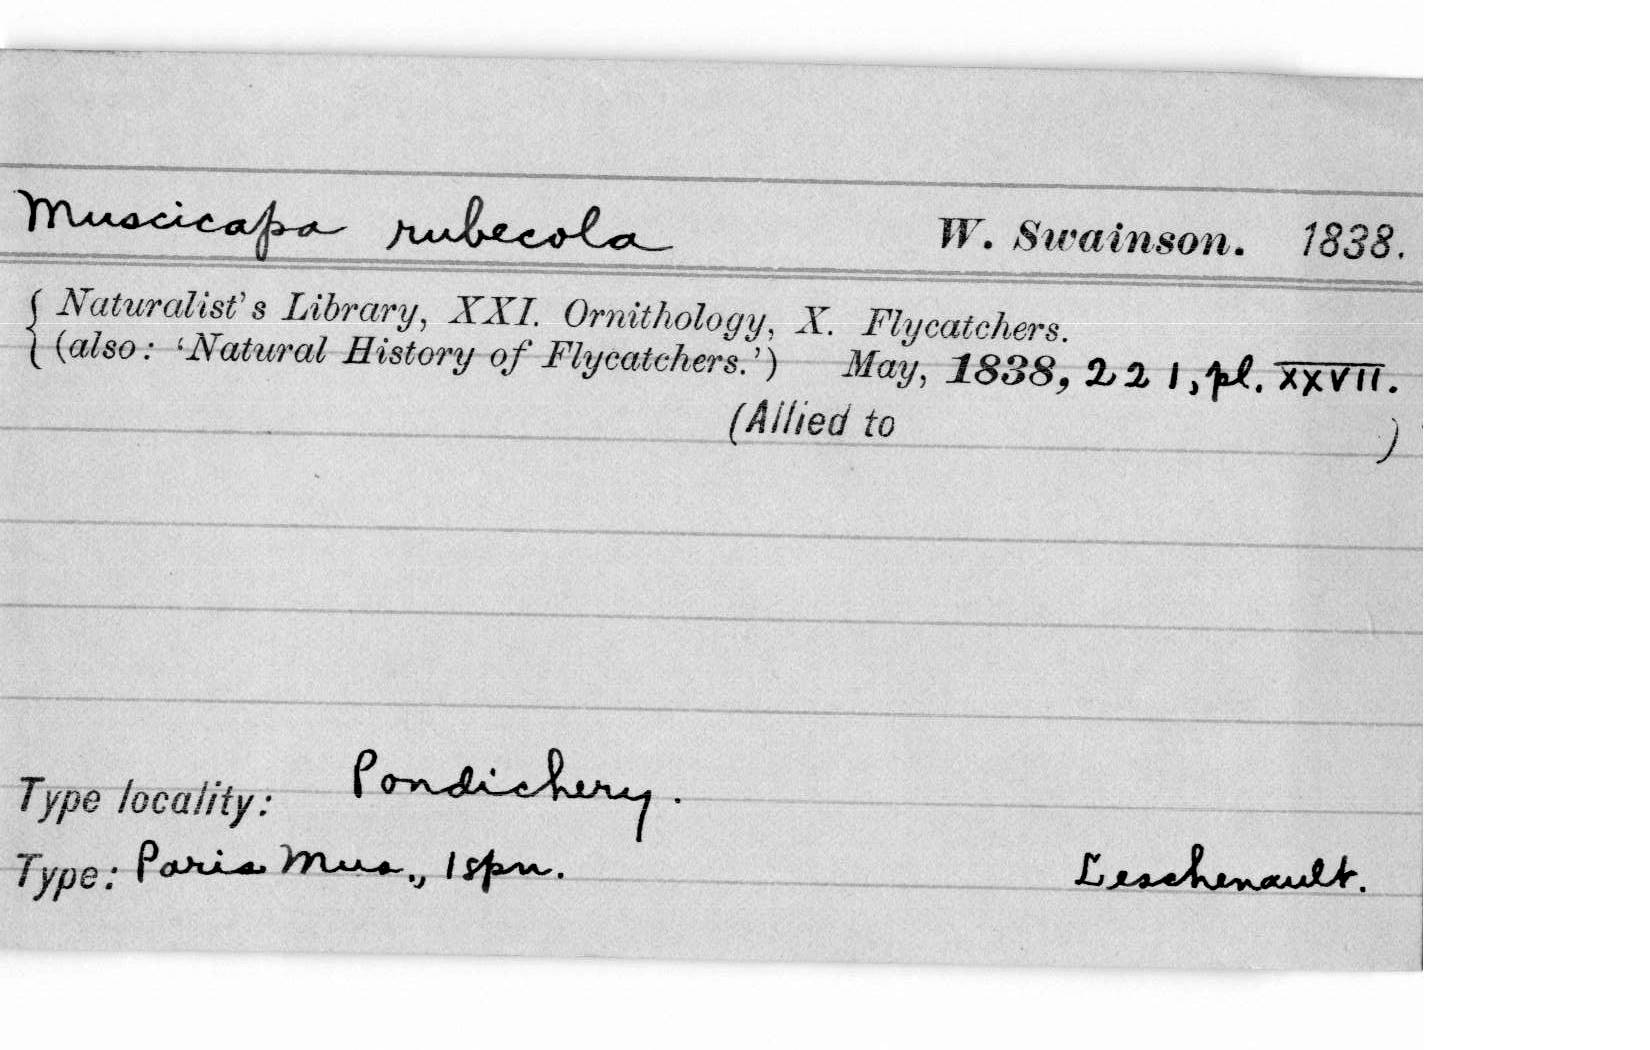 Muscicapa rubecola W. Swainson. 1838.
Naturalist's Library, XXI. Ornithology, X. Flycatchers.
(also: 'Natural History of Flycatchers.') May, 1838, 221, pl. XXVII.
(Allied to )
Type locality: Pondichery.
Type: Paris Mus., 1 spn. Leschenault.